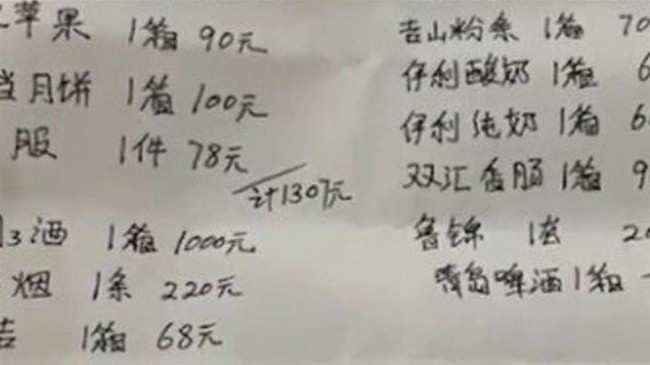 苹果 1箱 90元
月饼 1箱 100元
服 1件 78元
计1307元
酒 1箱 1000元
烟 1条 220元
1箱 68元
吉山粉条 1箱 70
伊利酸奶 1箱 6
伊利纯奶 1箱 6
双汇香肠 1箱 9
鲁锦 1套 2
青岛啤酒 1箱